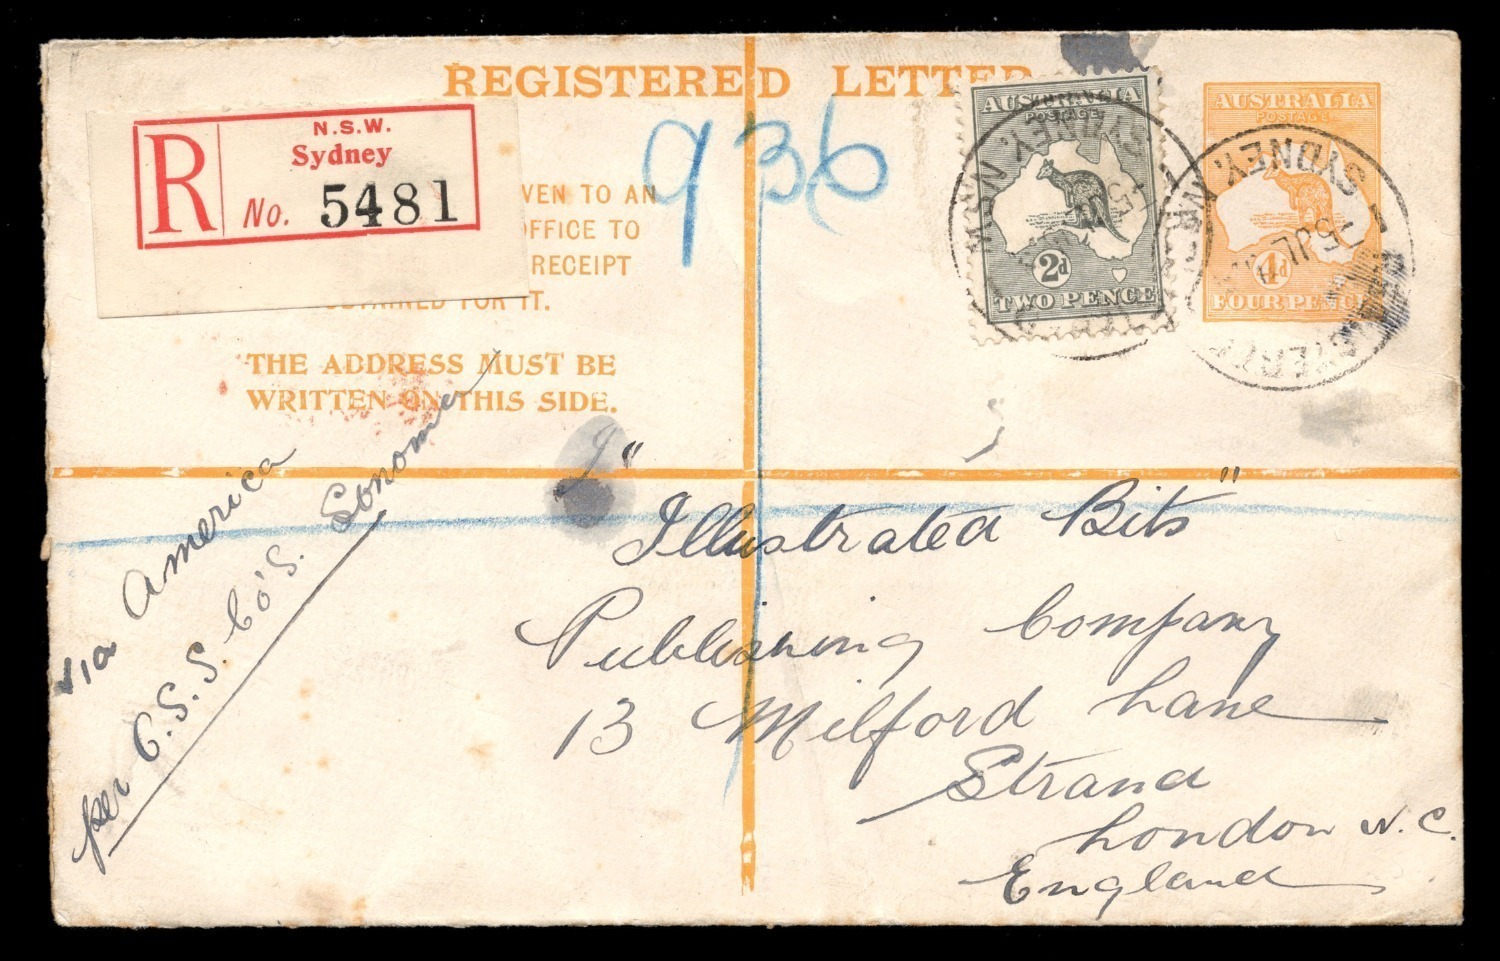 REGISTERED LETTER
R
N.S.W.
Sydney
No. 5481
936
VEN TO AN
OFFICE TO
RECEIPT
FOR IT.
THE ADDRESS MUST BE
WRITTEN ON THIS SIDE.
AUSTRALIA
POSTAGE
2d
TWO PENCE
AUSTRALIA
POSTAGE
4d
FOUR PENCE
SYDNEY. N.S.W
SYDNEY. N
5 JL
via America
per O.S.S. Co's. Sonoma
"Illustrated Bits"
Publishing Company
13 Milford Lane
Strand
London W.C.
England